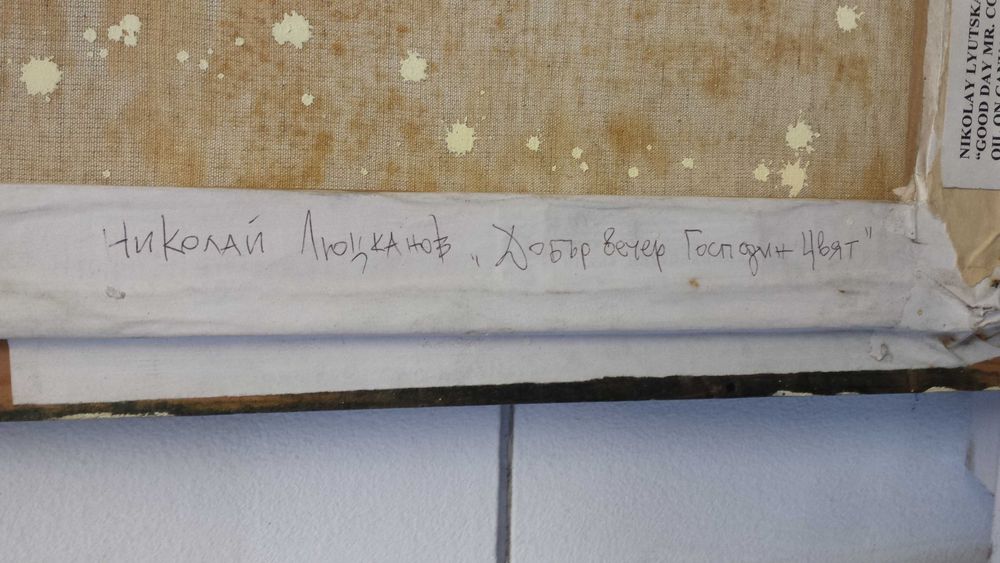 Николай Люцканов „Добър вечер Господин Цвят"
NIKOLAY LYUTSKA
“GOOD DAY MR. CO
OIL ON CANV